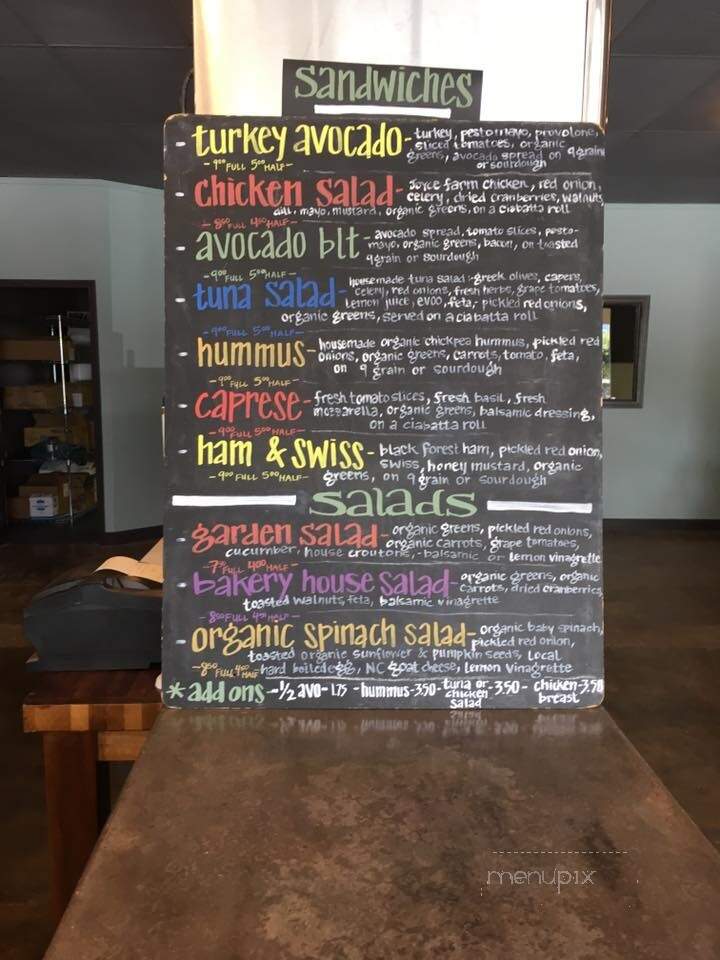 Sandwiches
turkey avocado- turkey, pesto mayo, provolone,
sliced tomatoes, organic
greens, avocado spread on 9 grain
or sourdough
-9⁰⁰ FULL 5⁰⁰ HALF-
chicken salad- Joyce farm chicken, red onion,
celery, dried cranberries, walnuts
dill, mayo, mustard, organic greens, on a ciabatta roll
FULL HALF-
avocado blt- avocado spread, tomato slices, pesto-
mayo, organic greens, bacon, on toasted
9 grain or sourdough
-9⁰⁰ FULL 5⁰⁰ HALF-
tuna salad- housemade tuna salad: greek olives, capers,
celery, red onions, fresh herbs, grape tomatoes,
lemon juice, evoo, feta, pickled red onions,
organic greens, served on a ciabatta roll
-9⁰⁰ FULL 5⁰⁰ HALF-
hummus- housemade organic chickpea hummus, pickled red
onions, organic greens, carrots, tomato, feta,
on 9 grain or sourdough
-9⁰⁰ FULL 5⁰⁰ HALF-
caprese- fresh tomato slices, fresh basil, fresh
mozzarella, organic greens, balsamic dressing,
on a ciabatta roll
-9⁰⁰ FULL 5⁰⁰ HALF-
ham & swiss- black forest ham, pickled red onion,
swiss, honey mustard, organic
greens, on 9 grain or sourdough
-9⁰⁰ FULL 5⁰⁰ HALF-
Salads
garden salad- organic greens, pickled red onions,
organic carrots, grape tomatoes,
cucumber, house croutons, -balsamic or lemon vinagrette
FULL 4⁰⁰ HALF-
bakery house salad- organic greens, organic
carrots, dried cranberries
toasted walnuts, feta, balsamic vinagrette
FULL HALF-
organic spinach salad- organic baby spinach,
pickled red onion,
toasted organic sunflower & pumpkin seeds, local
hard boiled egg, NC goat cheese, lemon vinagrette
-8⁵⁰ FULL HALF
*add ons -1/2 avo- 1.75 -hummus-3.50- tuna or chicken salad -3.50- chicken breast -3.50
menupix